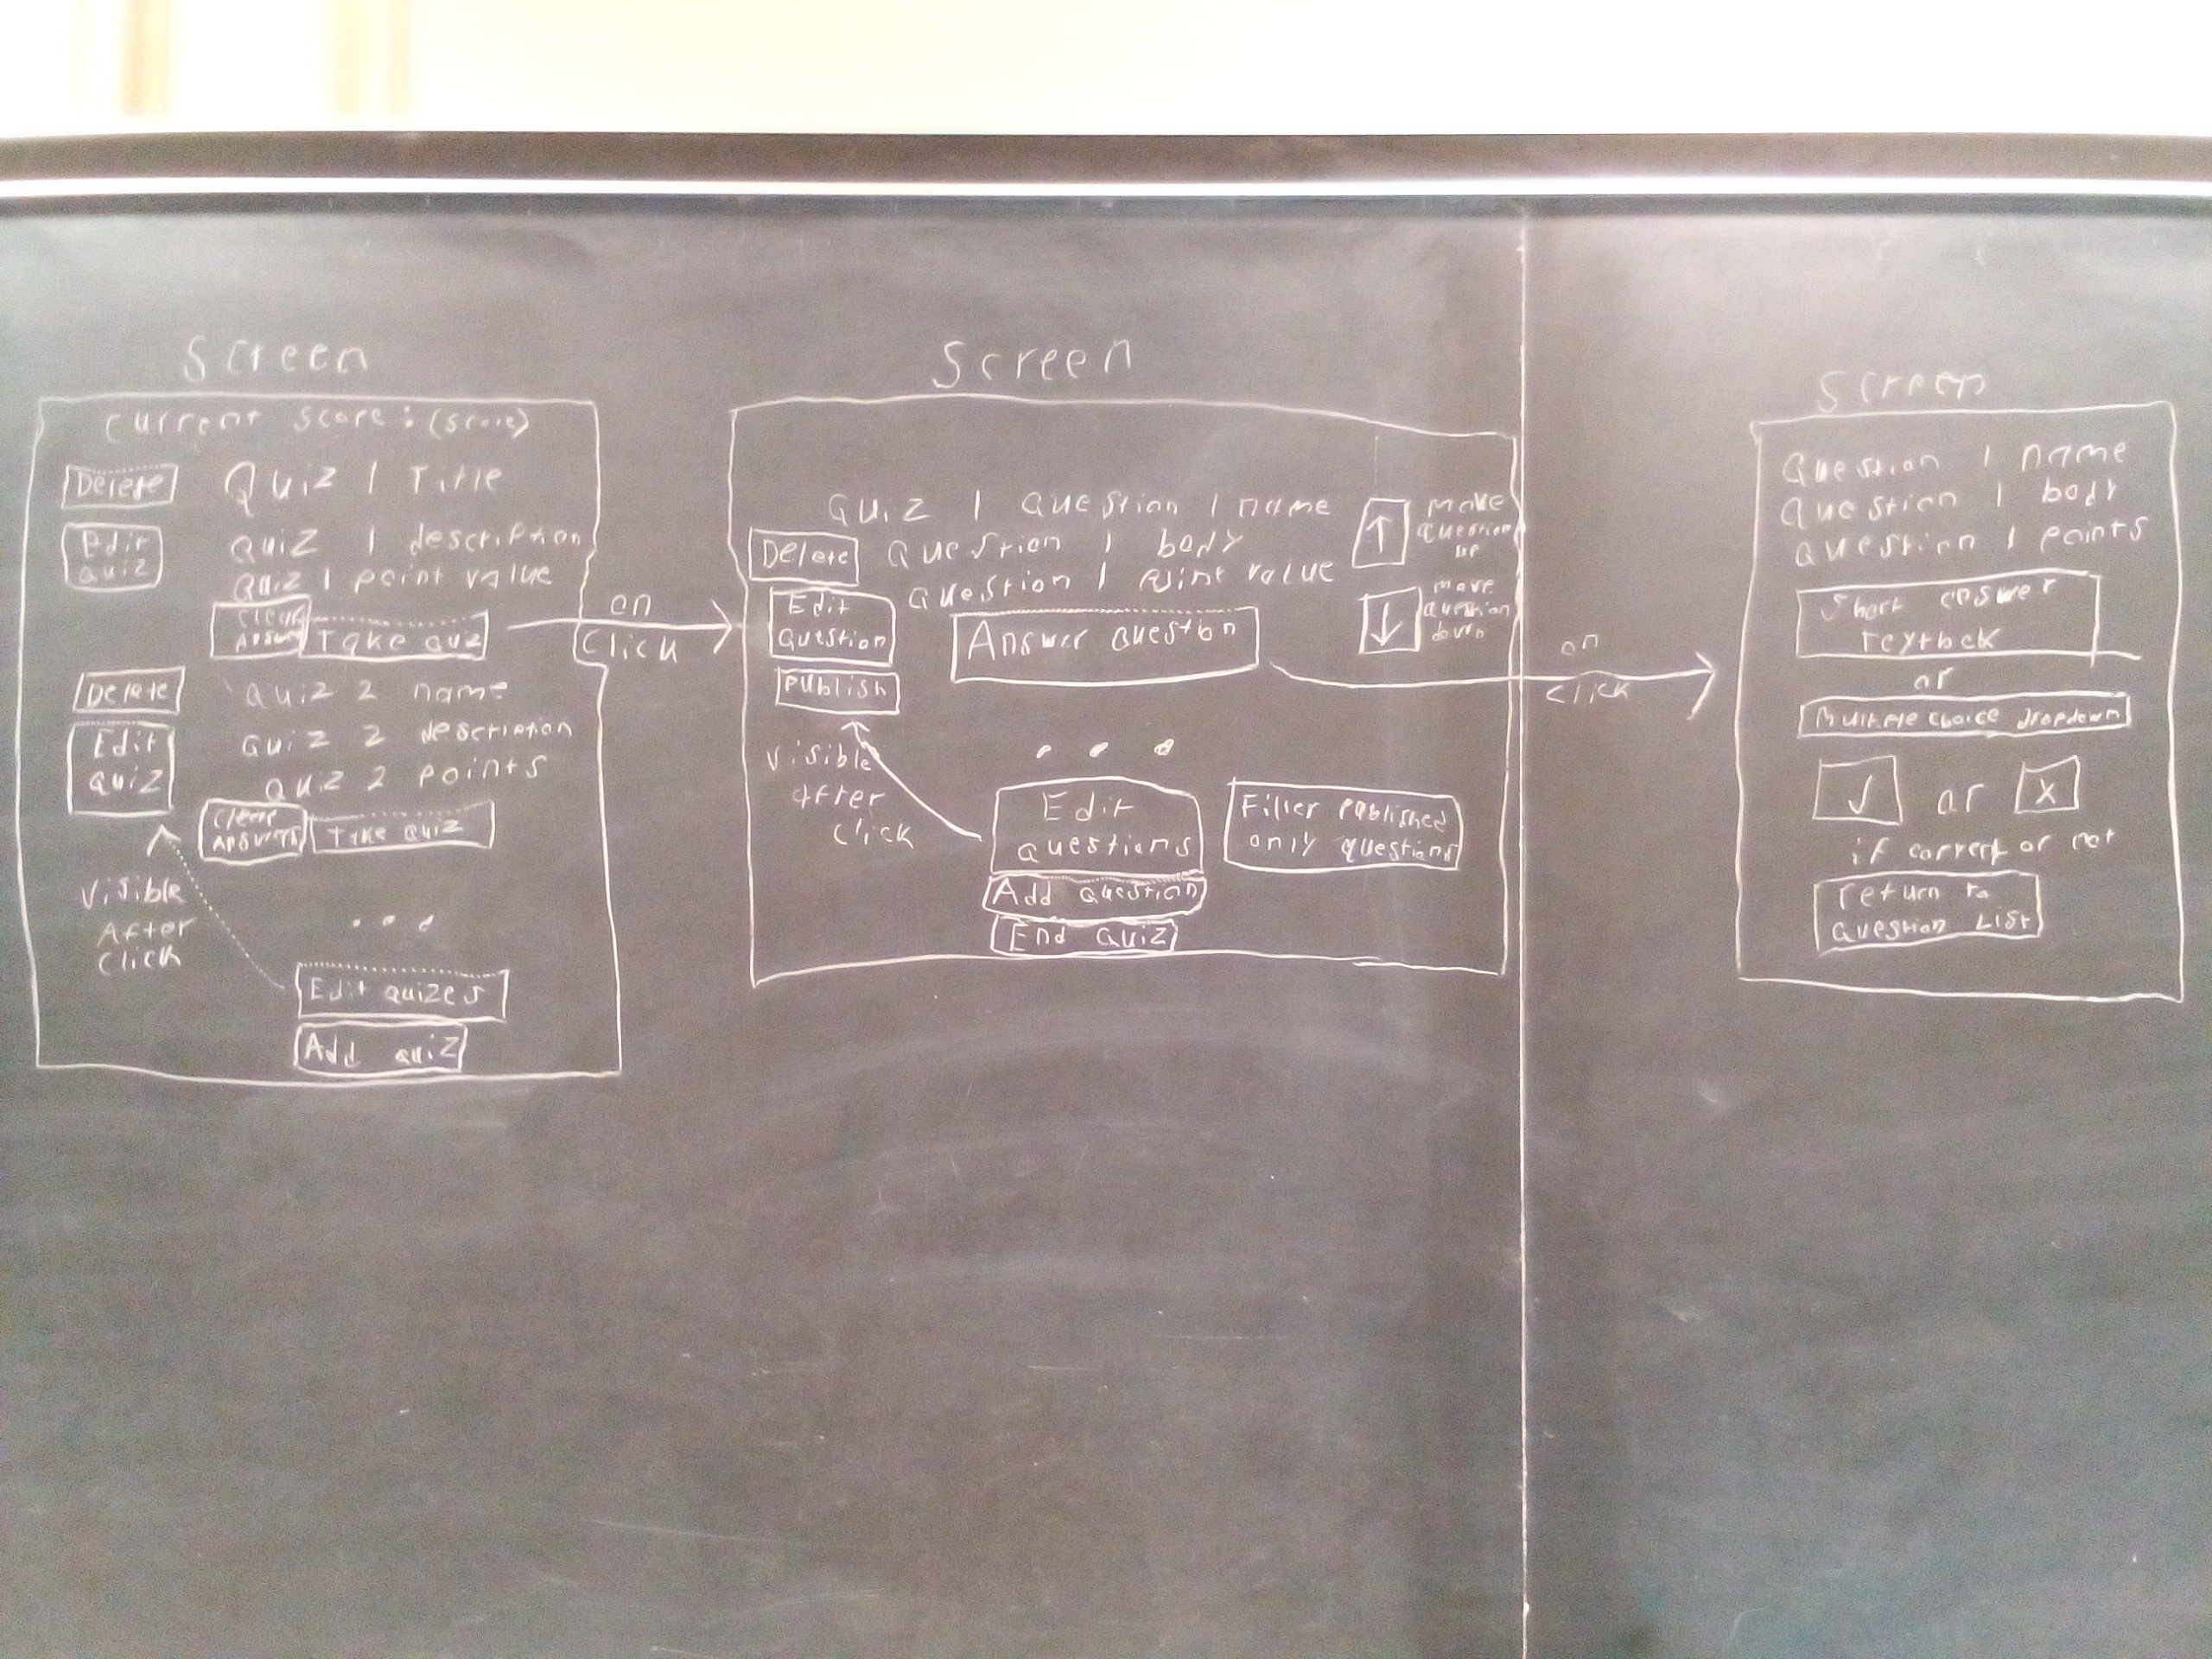 Screen
Current score: (score)
Delete
Quiz 1 Title
Edit
quiz
Quiz 1 description
Quiz 1 point value
Clear
Answers
Take quiz
on
Click
Delete
Quiz 2 name
Edit
quiz
Quiz 2 description
Quiz 2 points
Clear
Answers
Take quiz
Visible
After
Click
...
Edit quizes
Add quiz
Screen
Quiz 1 Question 1 name
Delete
Question 1 body
Question 1 point value
Edit
Question
Publish
Answer question
↑
question
up
↓
move
question
down
on
click
Visible
after
click
...
Edit
questions
Filter published
only questions
Add question
End quiz
Screen
Question 1 name
Question 1 body
Question 1 points
Short answer
textbox
or
Multiple choice dropdown
✓ or X
if correct or not
return to
question list